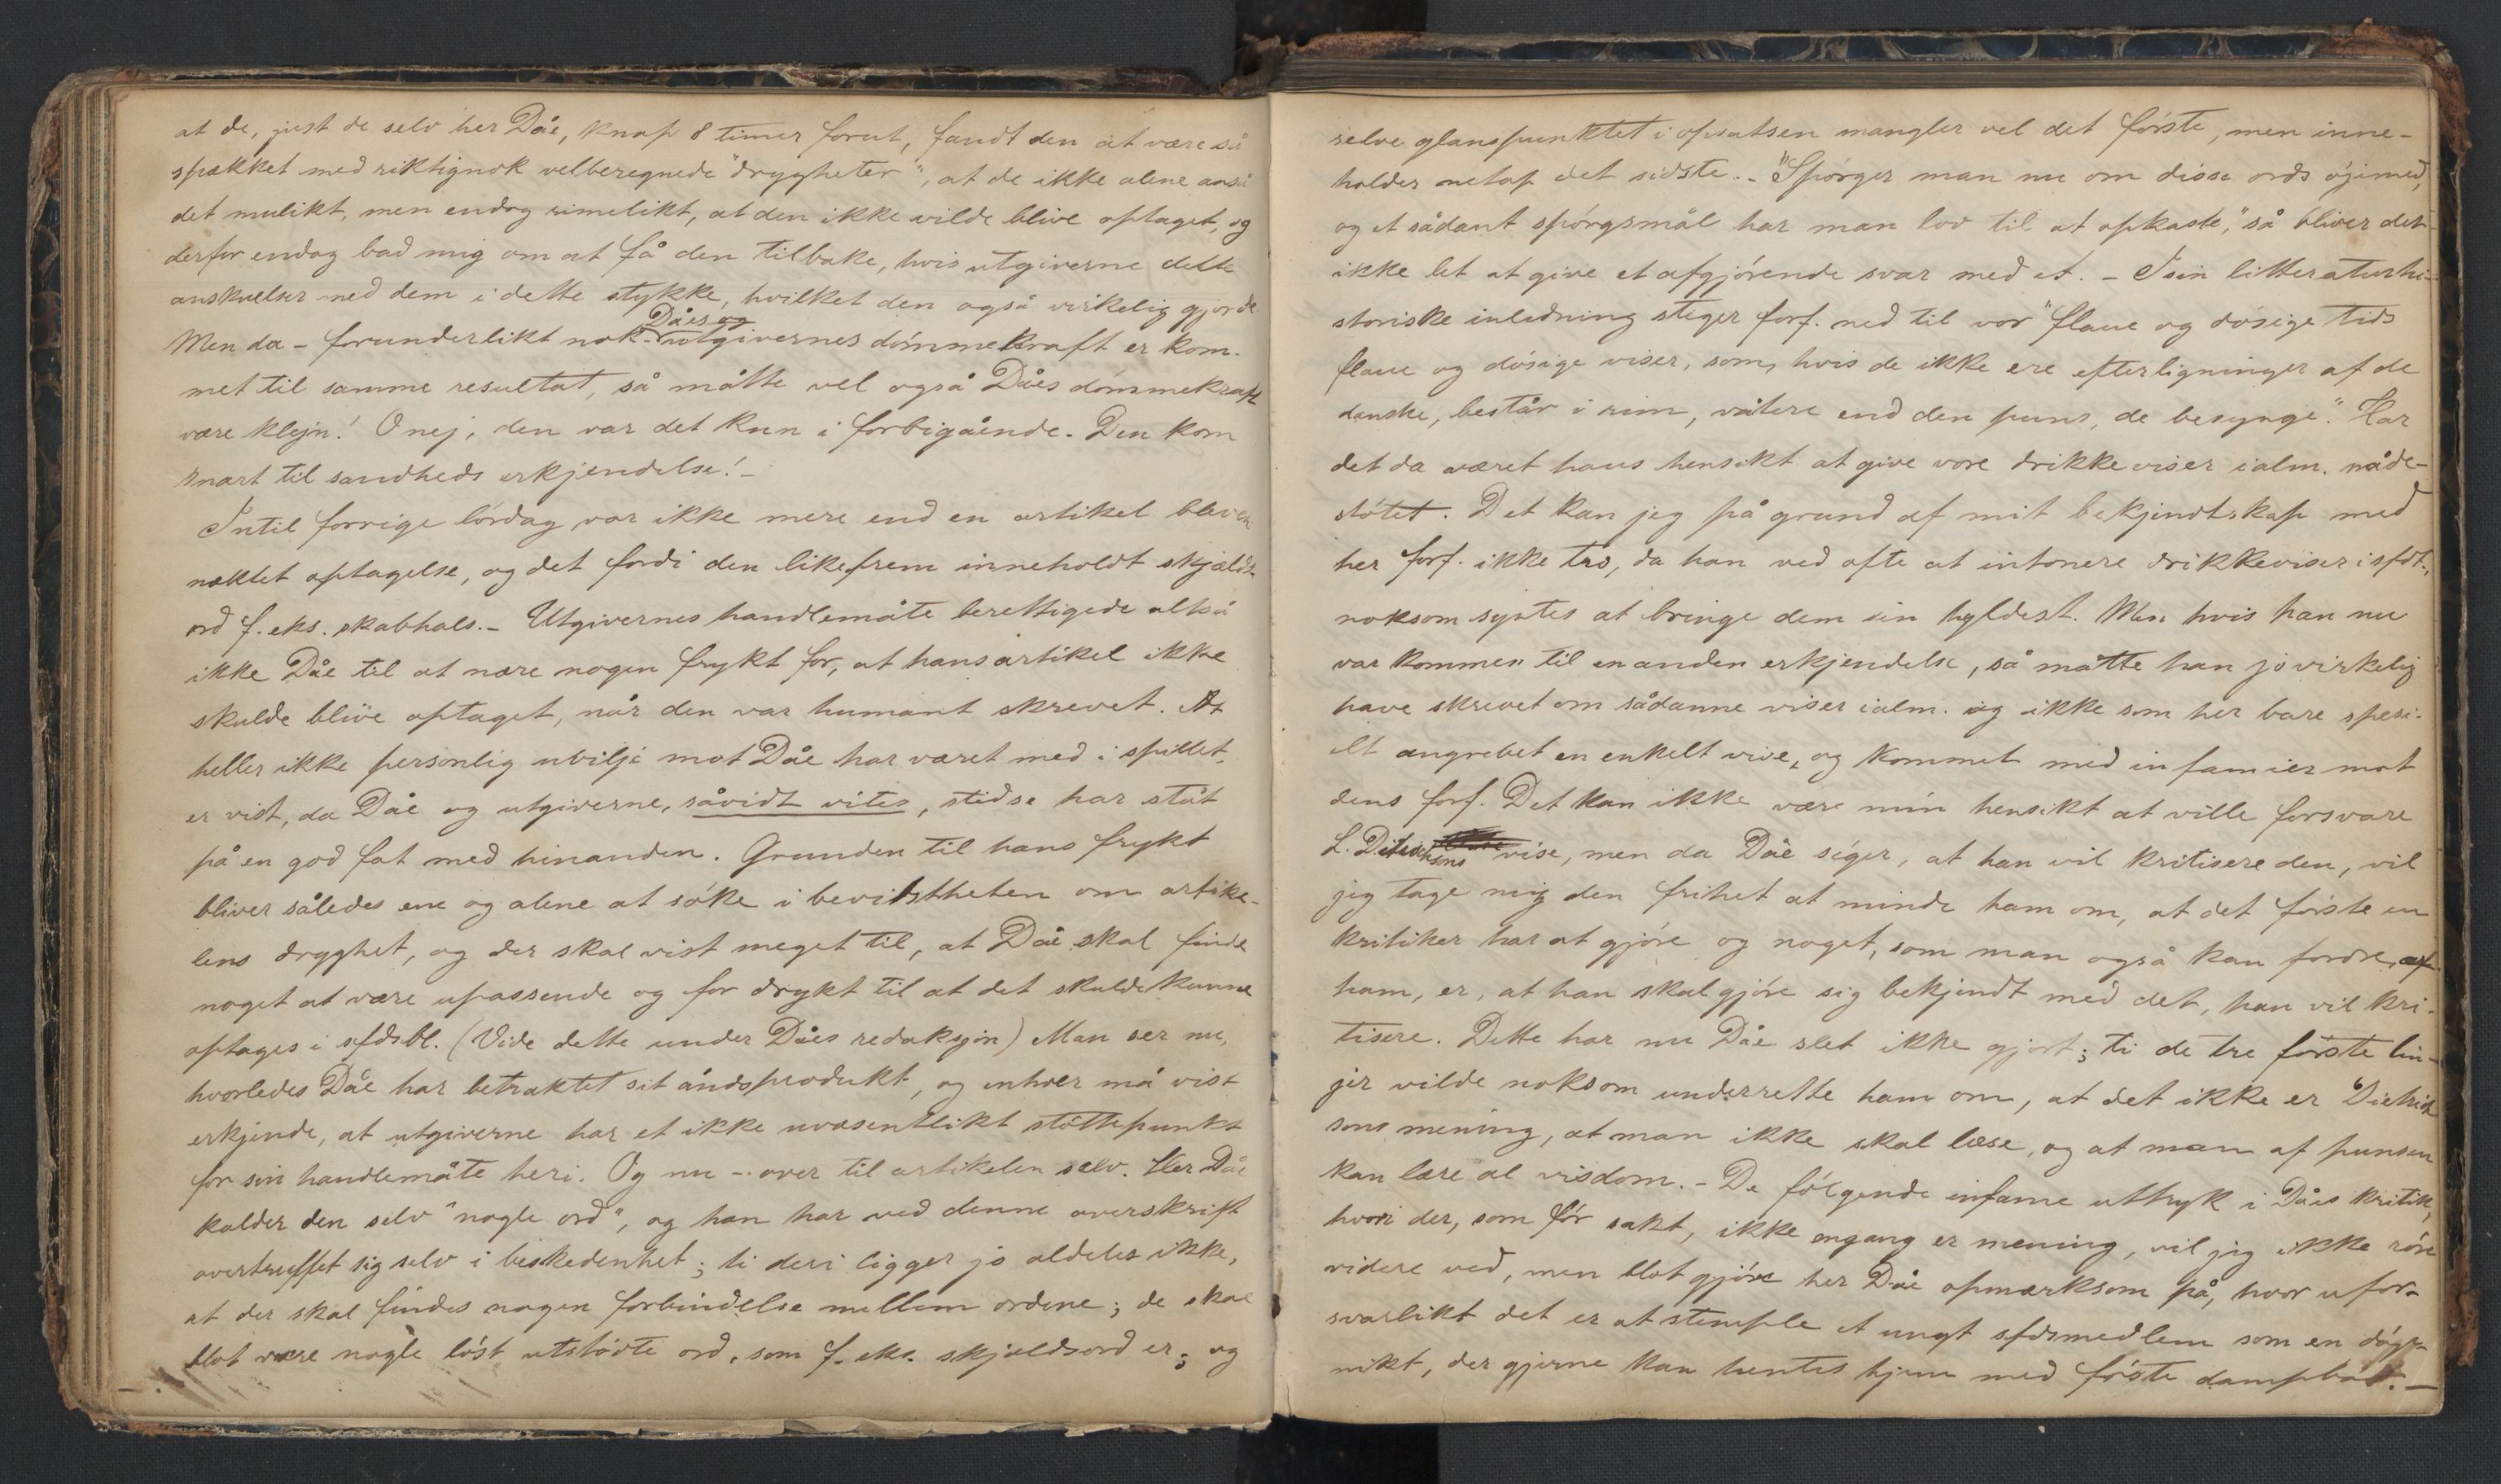 at de, just de selv her Dåe, knap 8 timer forut, fandt den at være så
spækket med riktignok velberegnede "drygheter", at de ikke alene anså
det mulikt, men endog rimelikt, at den ikke vilde blive optaget, og
derfor endog bad mig om at få den tilbake, hvis utgiverne delte
anskuelser med dem i dette stykke, hvilket den også virkelig gjorde
Men da - forunderlikt nok - Dåes og utgivernes dömmekraft er kom-
met til samme resultat, så måtte vel også Dåes dömmekraft
være klejn! O nej, den var det kun i forbigående. Den kom
snart til sandheds erkjendelse! -
Intil forrige lördag var ikke mere end en artikel bleven
nektet optagelse, og det fordi den likefrem inneholdt skjælds-
ord f. eks. skabhals. - Utgivernes handlemåte berettigede altså
ikke Dåe til at nære nogen frykt for, at hans artikel ikke
skulde blive optaget, når den var humant skrevet. At
heller ikke personlig uvilje mot Dåe har været med i spillet,
er vist, da Dåe og utgiverne, såvidt vites, stedse har ståt
på en god fot med hinanden. Grunden til hans frykt
bliver således ene og alene at söke i bevisstheten om artike-
lens dryghet, og der skal vist meget til, at Dåe skal finde
noget at være upassende og for drykt til at det skulde kunne
optages i sfdsbl. (Vide dette under Dåes redaksjon) Man ser nu,
hvorledes Dåe har betraktet sit åndsprodukt, og enhver må vist
erkjende, at utgiverne har et ikke uvæsentlikt stöttepunkt
for sin handlemåte heri. Og nu - over til artikelen selv. Her Dåe
kalder den selv "nogle ord", og han har ved denne overskrift
overtruffet sig selv i beskedenhet; ti deri ligger jo aldeles ikke,
at der skal findes nogen forbindelse mellem ordene; de skal
blot være nogle löst utstödte ord, som f. eks. skjældsord er; og
selve glanspunktet i opsatsen mangler vel det förste, men inne-
holder netop det sidste. - "Spörger man nu om disse ords öjemed,
og et sådant spörgsmål har man lov til at opkaste," så bliver det
ikke let at give et afgjörende svar med et. - I sin litteraturhi-
storiske inledning stiger forf. ned til vor "flaue og dösige tids
flaue og dösige viser, som, hvis de ikke ere efterligninger af de
danske, består i rim, våtere end den puns, de besynge". Har
det da været hans hensikt at give vore drikkeviser i alm. nåde-
stötet. Det kan jeg på grund af mit bekjendtskap med
her forf. ikke tro, da han ved ofte at intonere drikkeviser i sfdt.,
noksom syntes at bringe dem sin hyldest. Men hvis han nu
var kommen til en anden erkjendelse, så måtte han jo virkelig
have skrevet om sådanne viser i alm. og ikke som her bare spesi-
elt angrebet en enkelt vise, og kommet med infamier mot
dens forf. Det kan ikke være min hensikt at ville forsvare
L. Dietrichsons vise, men da Dåe siger, at han vil kritisere den, vil
jeg tage mig den frihet at minde ham om, at det förste en
kritiker har at gjöre og noget, som man også kan fordre af
ham, er, at han skal gjöre sig bekjendt med det, han vil kri-
tisere. Dette har nu Dåe slet ikke gjort; ti de tre förste lin-
jer vilde noksom underrette ham om, at det ikke er Dietrich
sons mening, at man ikke skal læse, og at man af punsen
kan lære al visdom. - De fölgende infame uttryk i Dåes kritik,
hvori der, som för sakt, ikke engang er mening, vil jeg ikke röre
videre ved, men blot gjöre her Dåe opmærksom på, hvor ufor-
svarlikt det er at stemple et ungt sfdsmedlem som en dög-
nikt, der gjerne kan hentes hjem med förste dampbåt. -